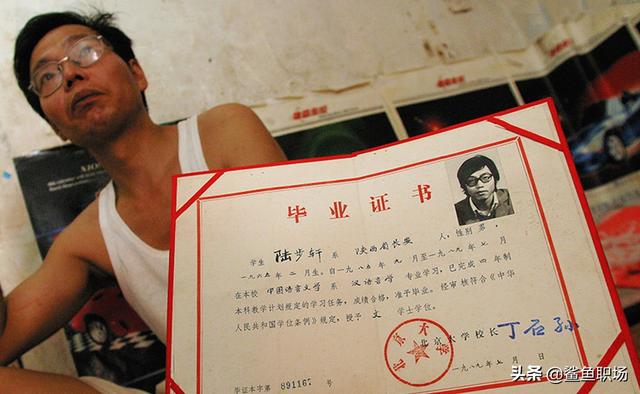 毕业证书
学生 陆步轩 系 陕西省长安 人,性别 男,
一九六五年 二 月生,自一九八五年 九 月至一九八九年 七 月
在本校 中国语言文学 系 汉语言学 专业学习,已完成 四 年制
本科教学计划规定的学习任务,成绩合格,准予毕业。经审核符合《中华
人民共和国学位条例》规定,授予 文 学士学位。
北京大学
北京大学校长 丁石孙
一九八九年七月 日
毕证本字第 891167 号
头条 @鲨鱼职场